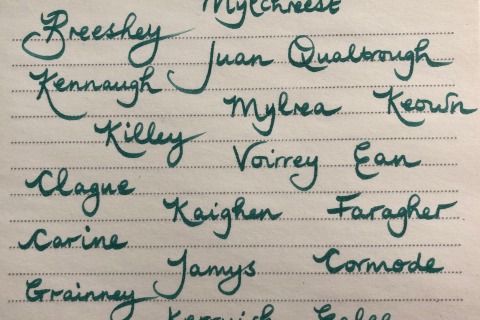 Mylchreest
Breeshey
Juan Qualtrough
Kennaugh
Mylrea Keown
Killey
Voirrey Ean
Clague
Kaighen Faragher
Carine
Jamys Cormode
Grainney